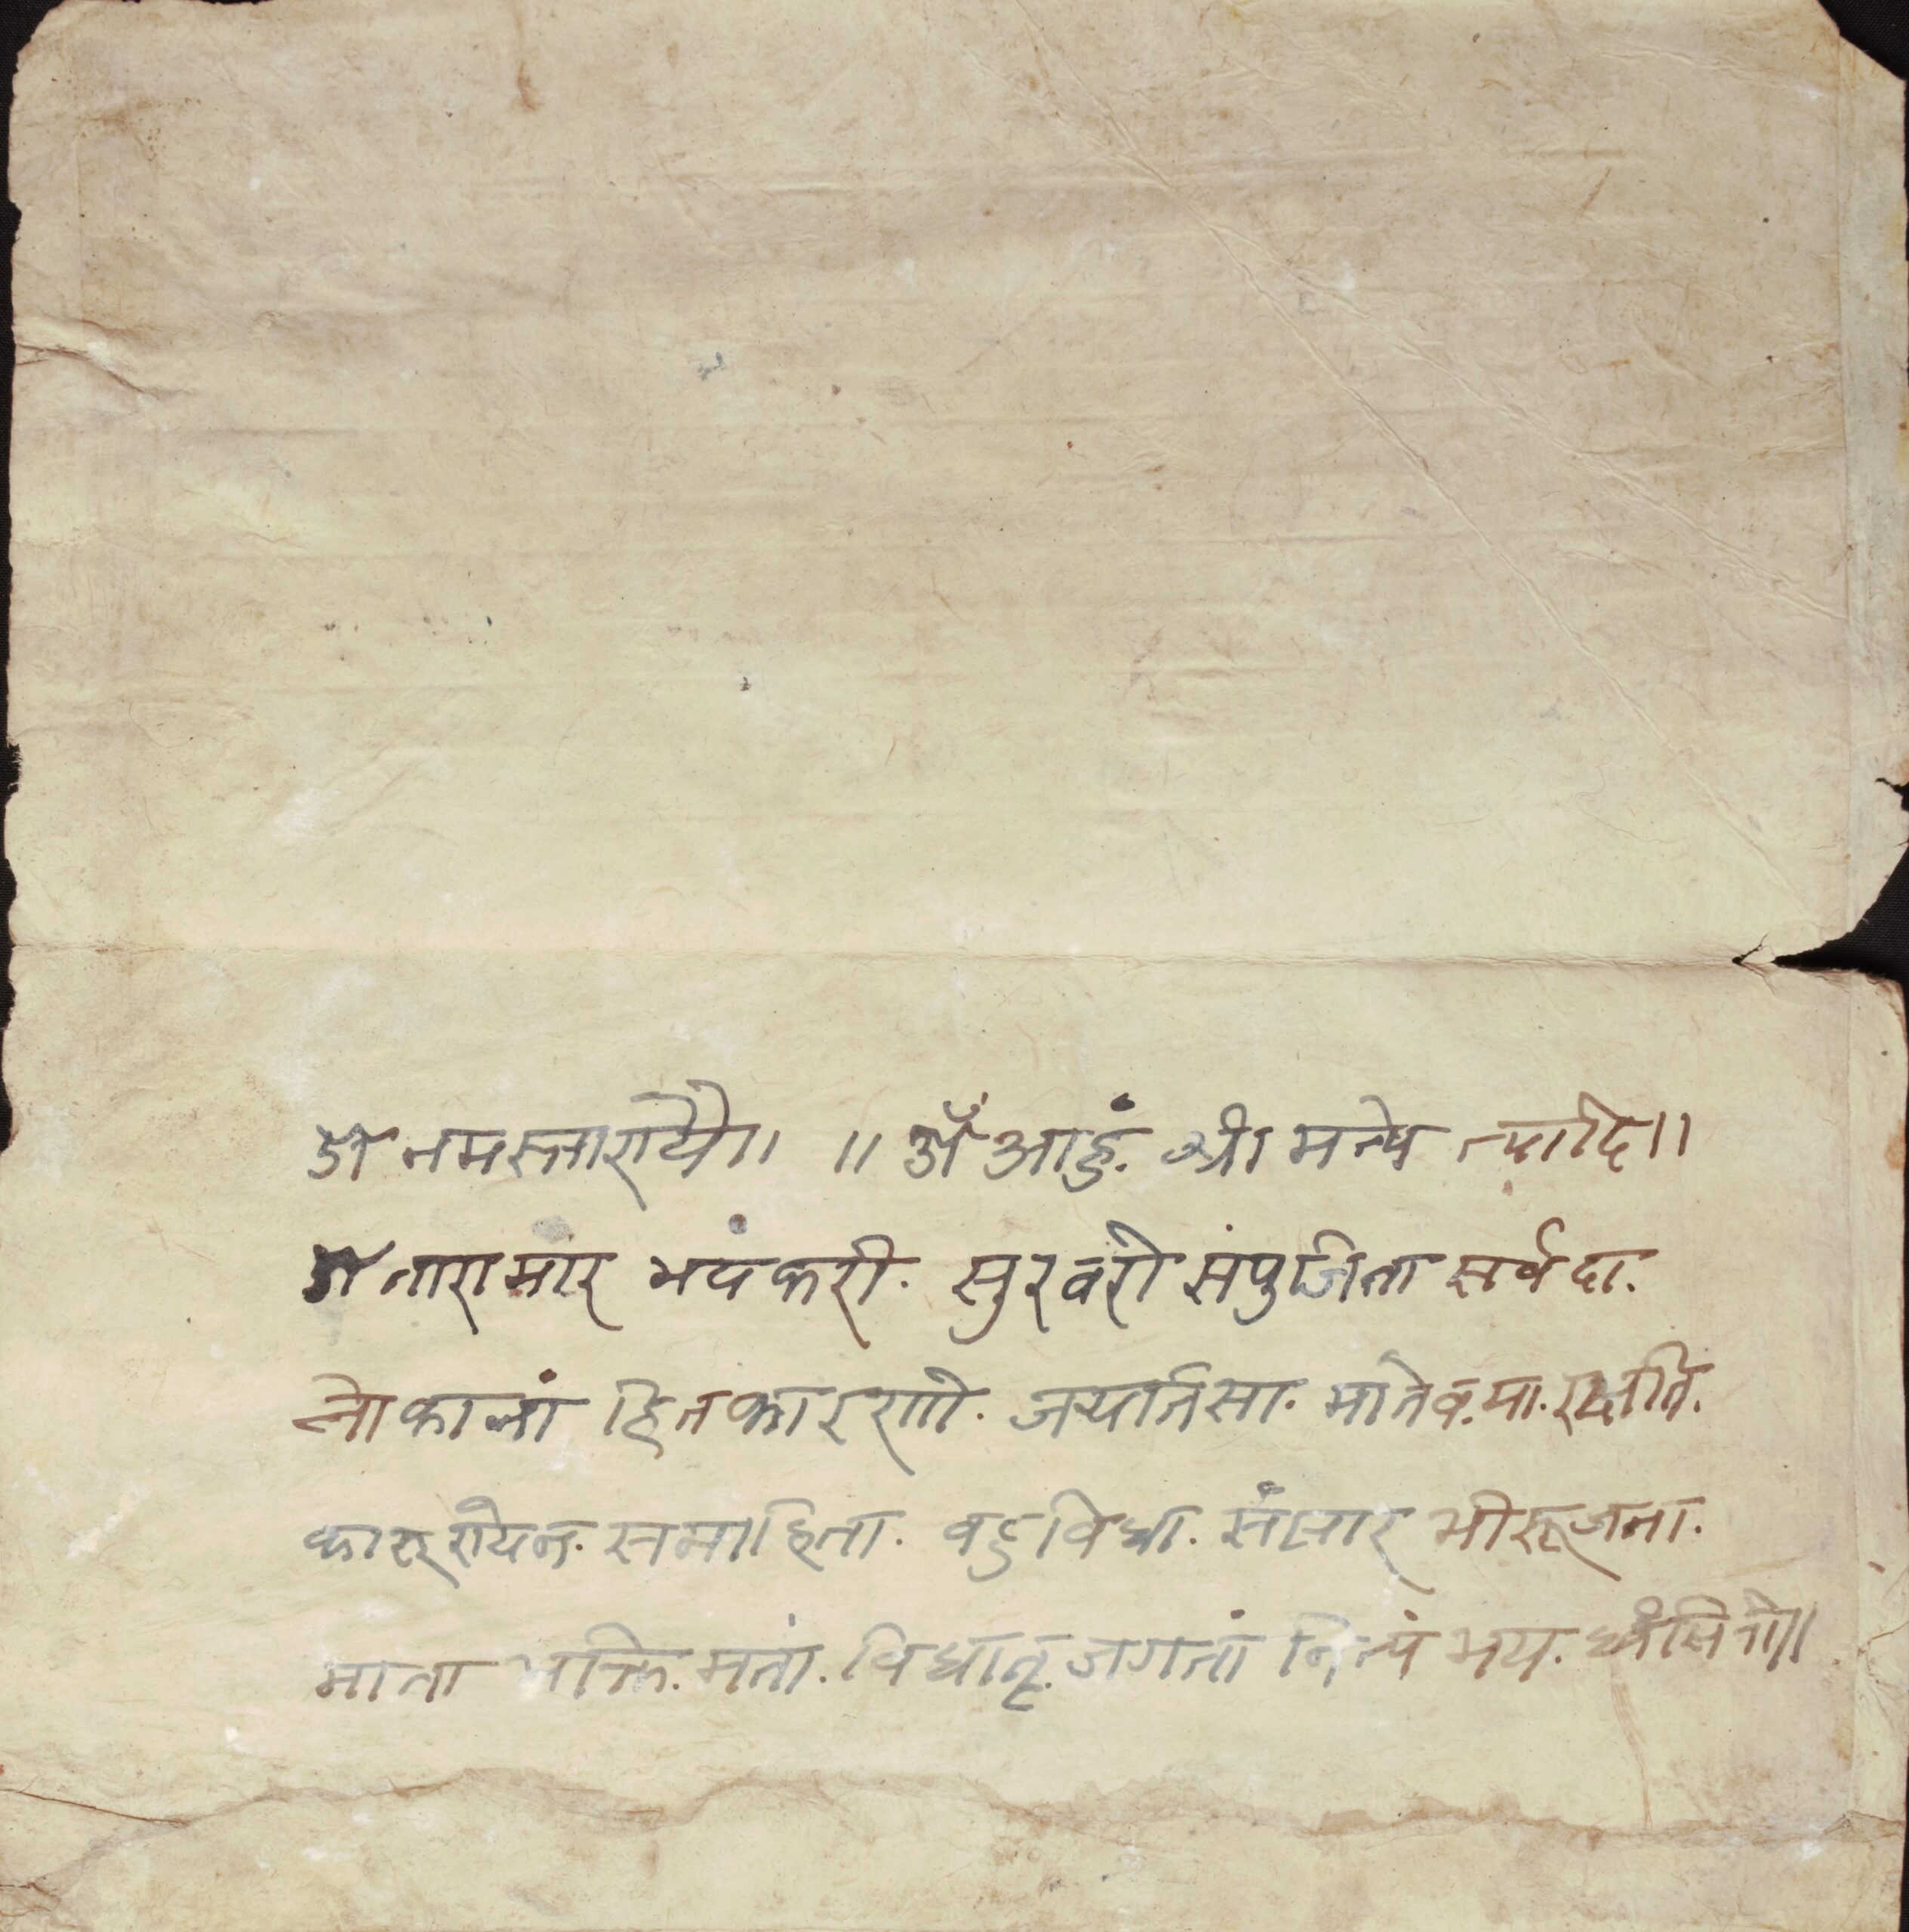 ॐ नमस्तारायै॥ ॥ ॐ आहुं. श्री मन्ये त्यादि॥
ॐ तारामार भयंकरी. सुरवरी संपुजिता सर्वदा.
लोकानां हितकाररणी. जयतिसा. मातेव.मा.रक्षति.
कारूरोयन. समाहिता. वहुविधा. संसार् भीरूजना.
माता भक्ति.मतां. विधातृ.जगतां नित्यं भय. ध्वंसिनी॥